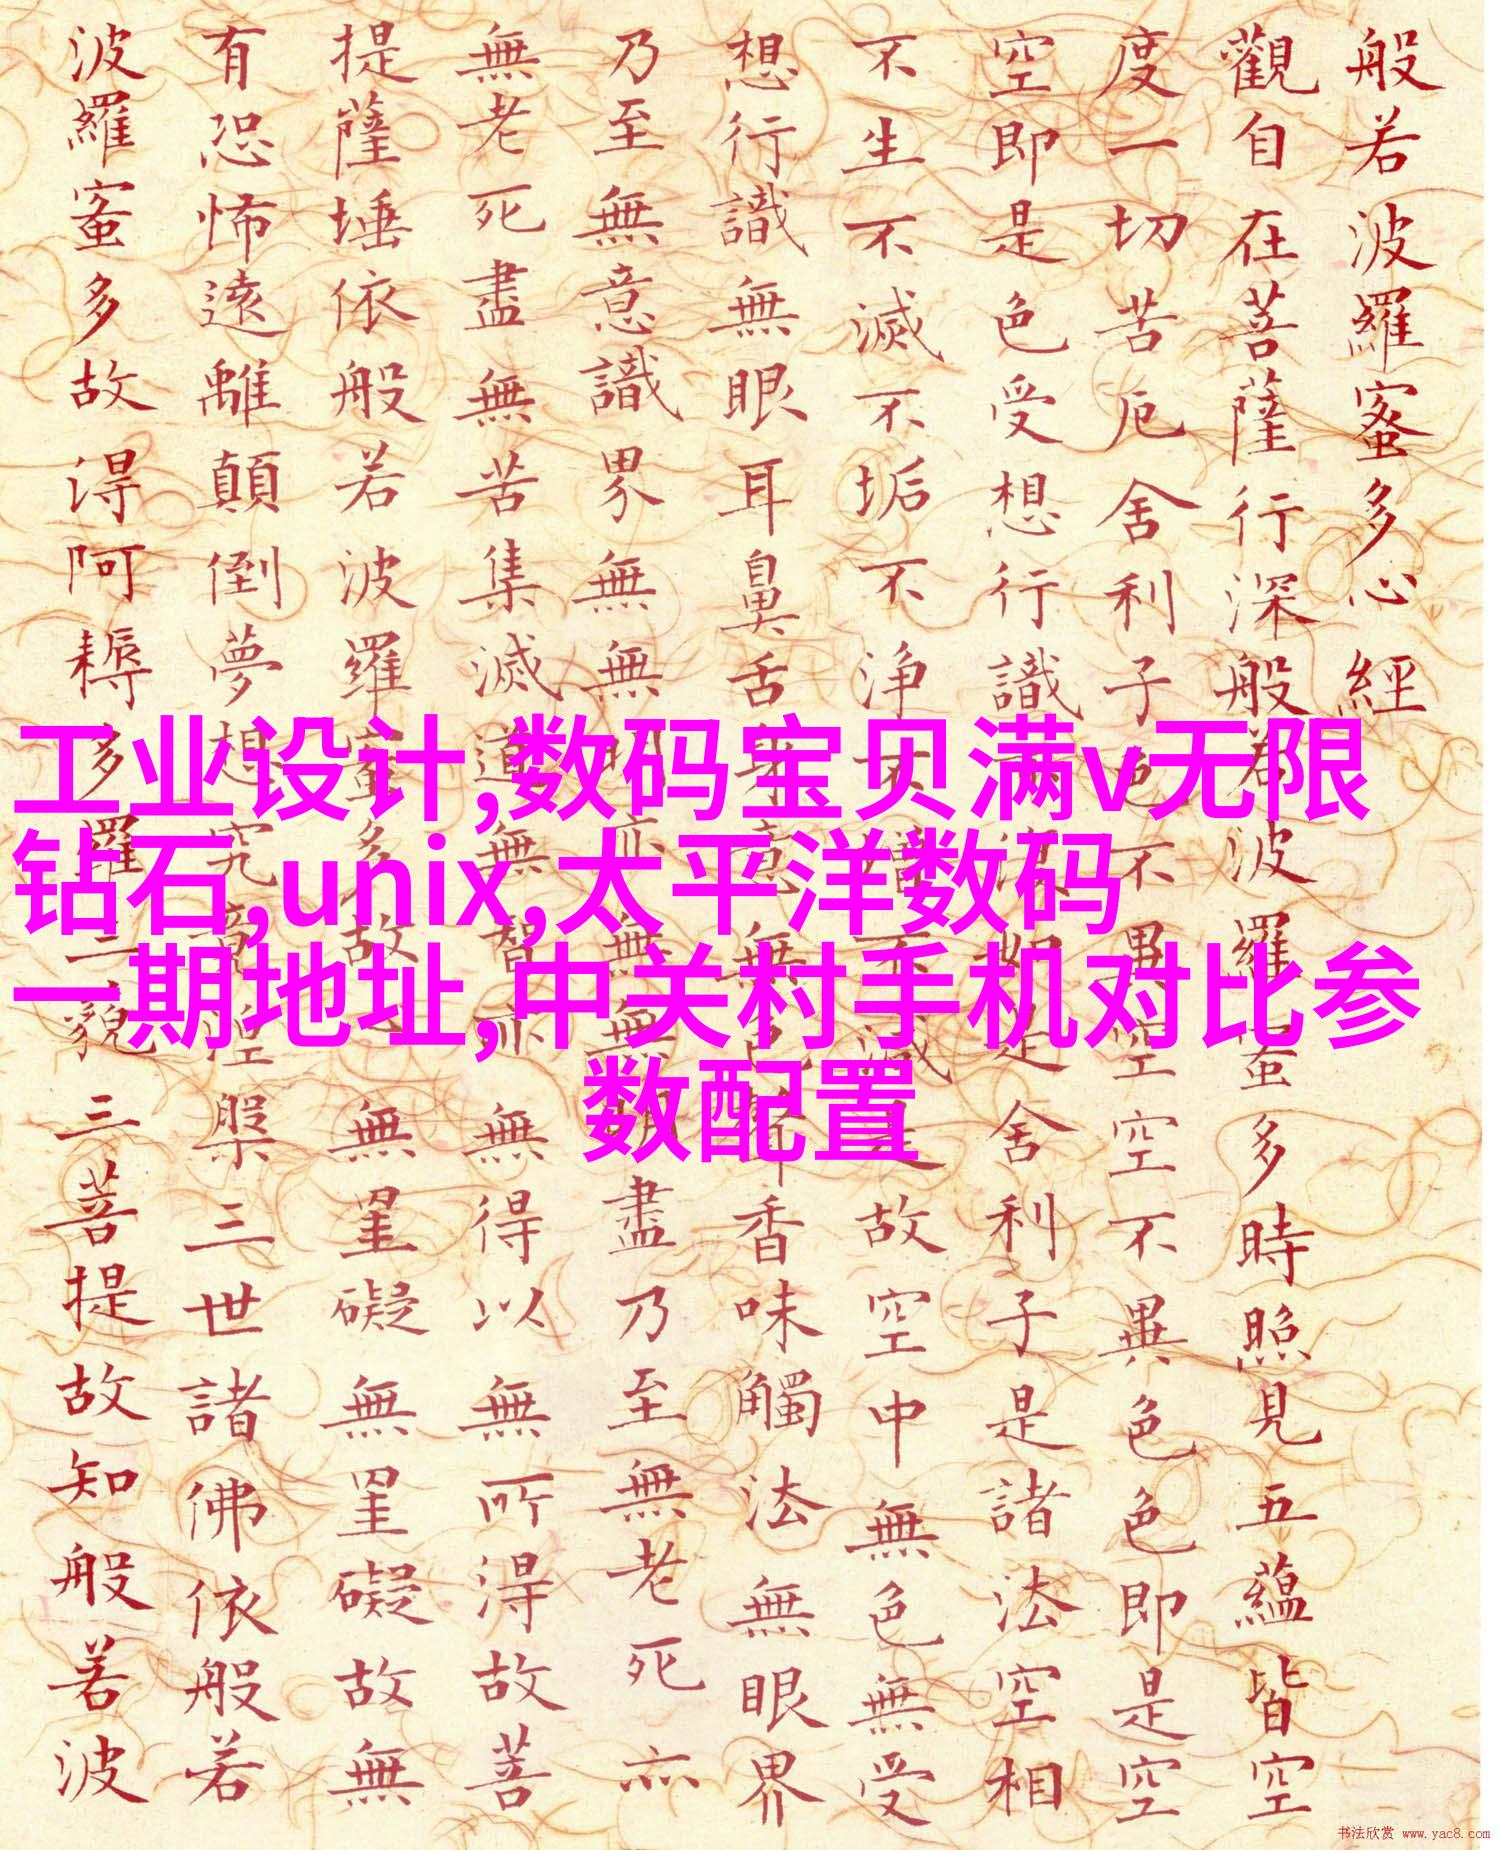 般若波羅蜜多心經
觀自在菩薩行深般若波羅蜜多時照見五蘊皆空
度一切苦厄舍利子色不異空空不異色色即是空
空即是色受想行識亦復如是舍利子是諸法空相
不生不滅不垢不浄不增不減是故空中無色無受
想行識無眼耳鼻舌身意無色聲香味觸法無眼界
乃至無意識界無無明亦無無明盡乃至無老死亦
無老死盡無苦集滅道無智亦無得以無所得故菩
提薩埵依般若波羅蜜多故心無罣礙無罣礙故無
有恐怖遠離顛倒夢想究竟涅槃三世諸佛依般若
波羅蜜多故得阿耨多羅三藐三菩提故知般若波
工业设计,数码宝贝满v无限
钻石,unix,太平洋数码
一期地址,中关村手机对比参
数配置
书法欣赏 www.yac8.com